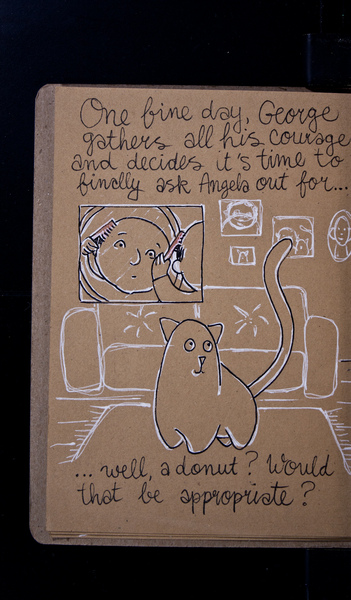 One fine day, George
gathers all his courage
and decides it's time to
finally ask Angela out for...
... well, a donut? Would
that be appropriate?